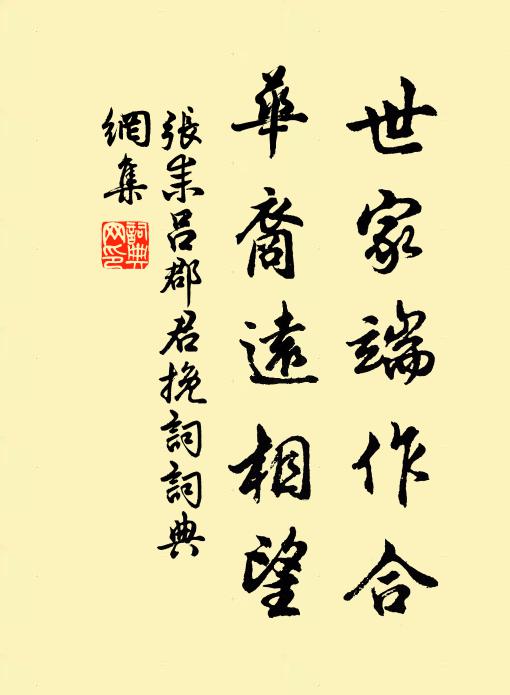 世家端作合
華裔遠相望
張耒呂郡君挽詞詞典
網集
詞典網印